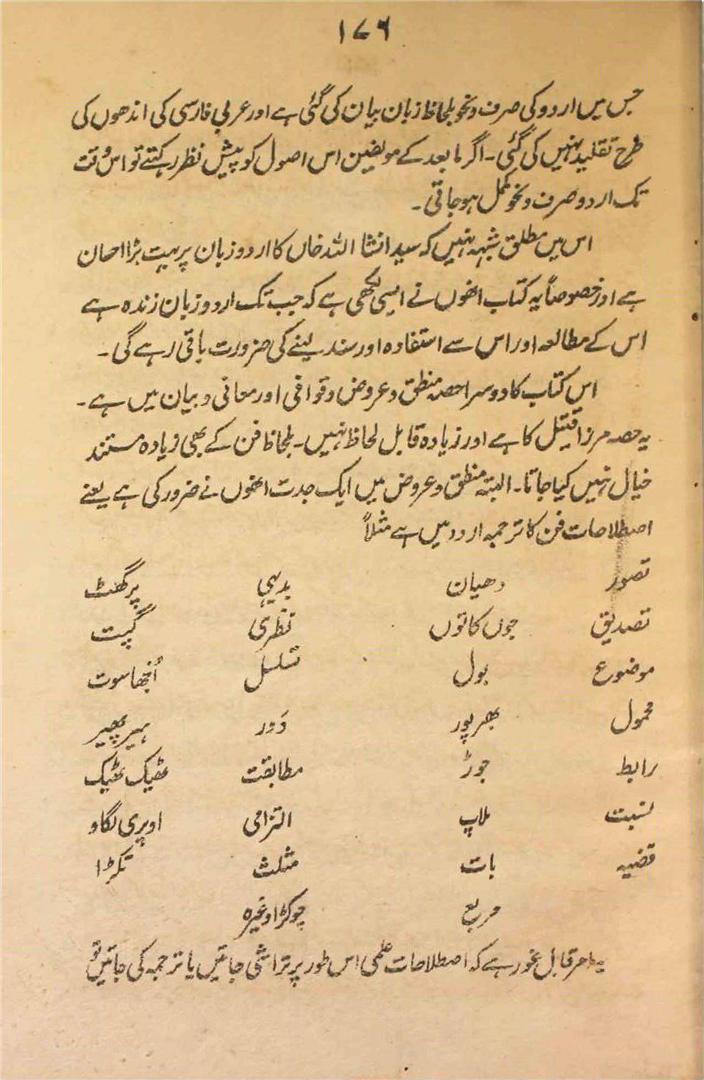 ۱۷۶
جس میں اردو کی صرف و نحو بلحاظ زبان بیان کی گئی ہے اور عربی فارسی کی اندھوں کی
طرح تقلید نہیں کی گئی ۔ اگر ما بعد کے مولفین اس اصول کو پیش نظر رکھتے تو اس وقت
تک اردو صرف و نحو مکمل ہو جاتی ۔
اس میں مطلق شبہہ نہیں کہ سید انشا اللہ خاں کا اردو زبان پر بہت بڑا احسان
ہے اور خصوصاً یہ کتاب انھوں نے ایسی لکھی ہے کہ جب تک اردو زبان زندہ ہے
اس کے مطالعہ اور اس سے استفادہ اور سند لینے کی ضرورت باقی رہے گی ۔
اس کتاب کا دوسرا حصہ منطق و عروض و قوافی اور معانی و بیان میں ہے ۔
یہ حصہ مرزا قتیل کا ہے اور زیادہ قابل لحاظ نہیں ۔ بلحاظ فن کے بھی زیادہ مستند
خیال نہیں کیا جاتا ۔ البتہ منطق و عروض میں ایک جدت انھوں نے ضرور کی ہے یعنے
اصطلاحات فن کا ترجمہ اردو میں ہے مثلاً
تصور دھیان بدیہی پرگھٹ
تصدیق جوں کا توں نظری گپت
موضوع بول تسلسل اُلجھا سوت
محمول بھرپور دَور ہیر پھیر
رابط جوڑ مطابقت ٹھیک ٹھیک
نسبت ملاپ التزامی اوپری لگاو
قضیہ بات مثلث تکڑا
مربع چوکڑا وغیرہ
یہ امر قابل غور ہے کہ اصطلاحات علمی اس طور پر تراشی جائیں یا ترجمہ کی جائیں تو